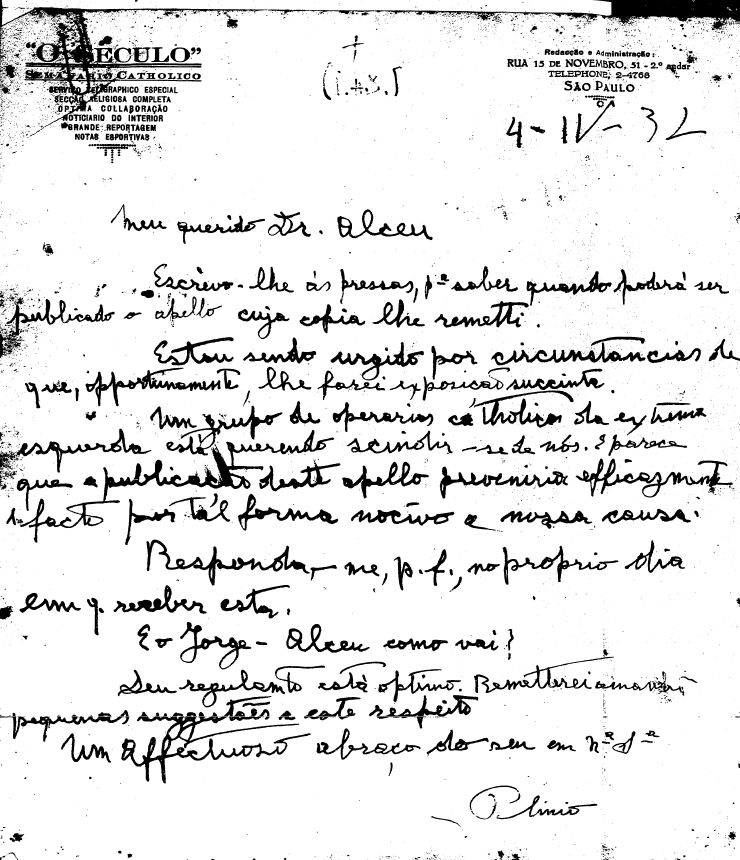 "O SÉCULO"
SEMANARIO CATHOLICO
SERVIÇO TELEGRAPHICO ESPECIAL
SECÇÃO RELIGIOSA COMPLETA
OPTIMA COLLABORAÇÃO
NOTICIARIO DO INTERIOR
GRANDE REPORTAGEM
NOTAS ESPORTIVAS
Redacção e Administração:
RUA 15 DE NOVEMBRO, 51 - 2.º andar
TELEPHONE, 2-4768
SÃO PAULO
4 - IV - 32
Meu querido Dr. Alceu
Escrevo-lhe ás pressas, pª saber quando poderá ser
publicado o apello cuja copia lhe remetti.
Estou sendo urgido por circunstancias de
que, opportunamente, lhe farei exposição succinta.
Um grupo de operarios catholicos da extrema
esquerda está querendo scindir-se de nós. E parece
que a publicação deste apello preveniria efficazmente
facto por tal forma nocivo a nossa causa.
Responda-me, p. f., no proprio dia
em q. receber esta.
E o Jorge-Alceu como vai?
Seu regulamto está optimo. Remetterei
pequenas suggestões a este respeito
Um affectuoso abraço do seu em Nª Sª
Plinio